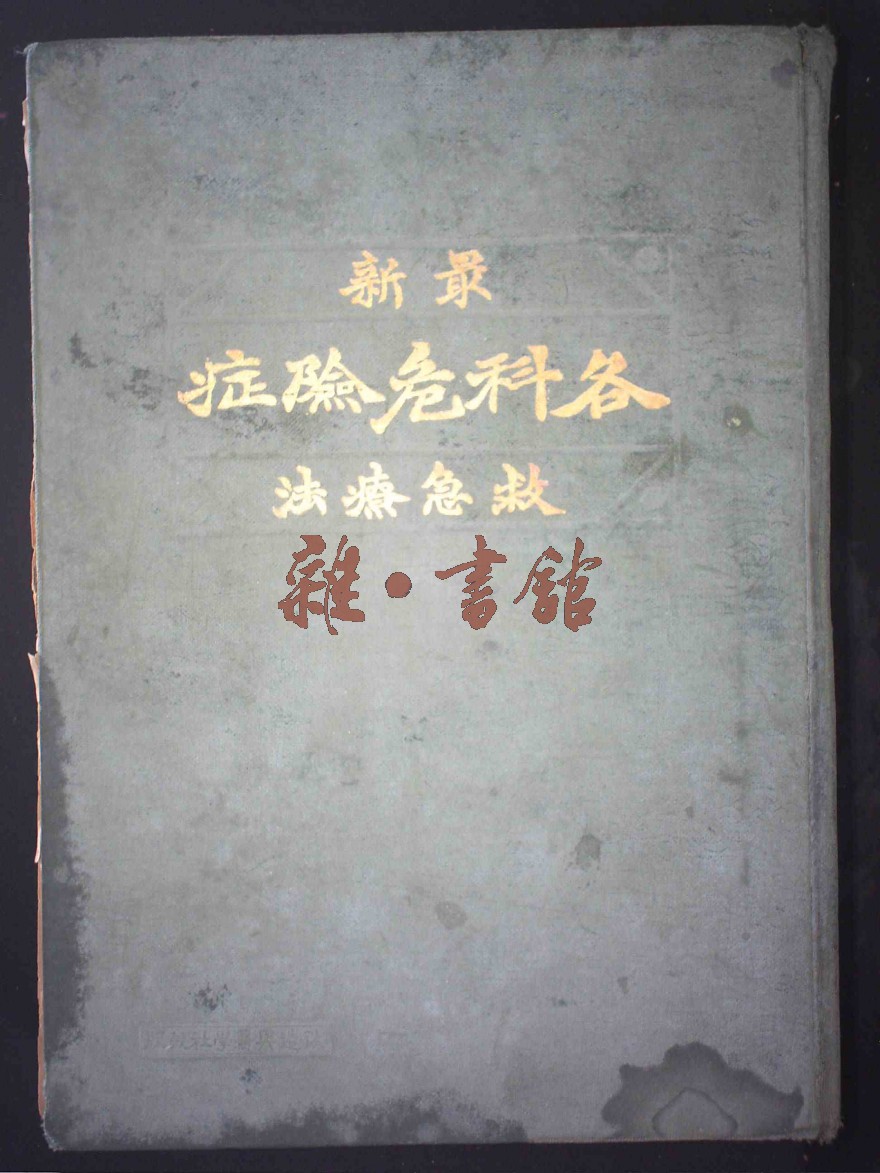 最新
各科危險症
救急療法
雜·書館